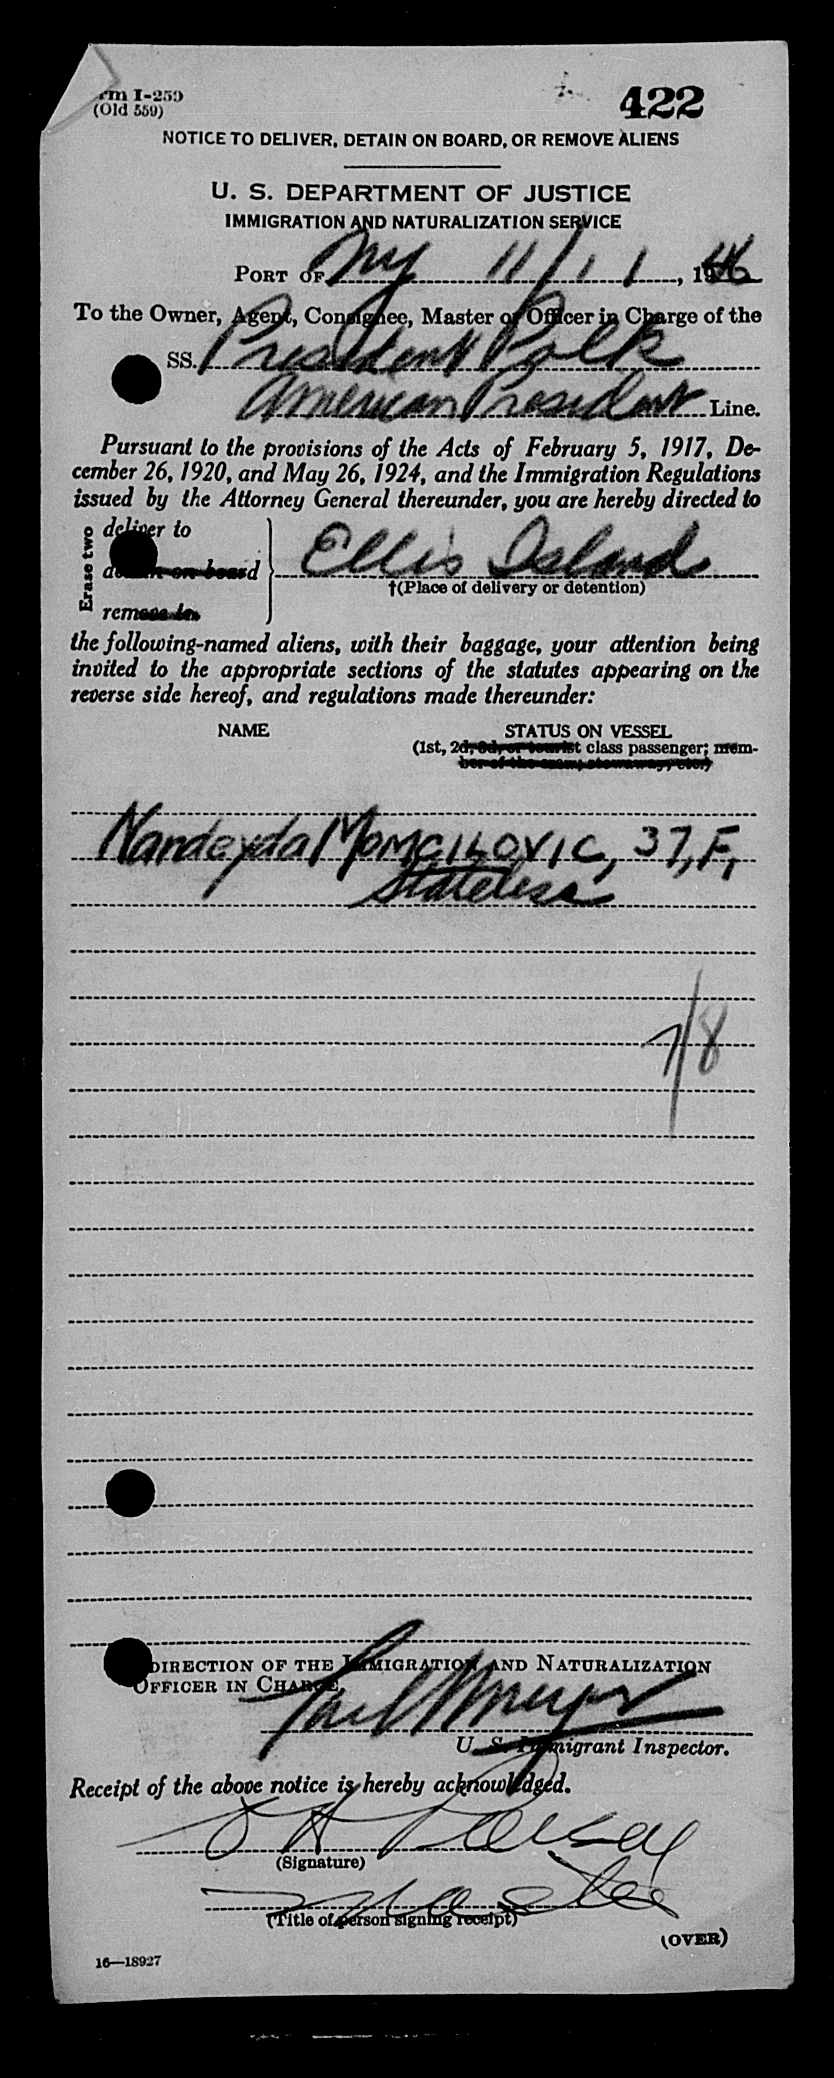 rm I-259
(Old 559)
422
NOTICE TO DELIVER, DETAIN ON BOARD, OR REMOVE ALIENS
U. S. DEPARTMENT OF JUSTICE
IMMIGRATION AND NATURALIZATION SERVICE
PORT OF NY 11/11, 1946
To the Owner, Agent, Consignee, Master or Officer in Charge of the
SS. President Polk
American President Line.
Pursuant to the provisions of the Acts of February 5, 1917, De-
cember 26, 1920, and May 26, 1924, and the Immigration Regulations
issued by the Attorney General thereunder, you are hereby directed to
Erase two
deliver to
detain on board
remove to
Ellis Island
†(Place of delivery or detention)
the following-named aliens, with their baggage, your attention being
invited to the appropriate sections of the statutes appearing on the
reverse side hereof, and regulations made thereunder:
NAME STATUS ON VESSEL
(1st, 2d, 3d, or tourist class passenger; mem-
ber of the crew; stowaway, etc.)
Nandeyda MOMCILOVIC, 37, F,
Stateless
1/8
DIRECTION OF THE IMMIGRATION AND NATURALIZATION
OFFICER IN CHARGE,
U. S. Immigrant Inspector.
Receipt of the above notice is hereby acknowledged.
(Signature)
Master
(Title of person signing receipt)
(OVER)
16—18927